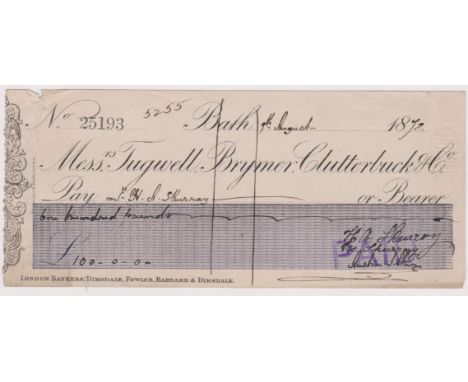 No 25193 5255 Bath 9th August 1872
Messrs Tugwell, Brymer, Clutterbuck & Co
Pay H. A. Murray or Bearer
One hundred Pounds
£ 100-0-0-
PAID
London Bankers, Dimsdale, Fowler, Barnard & Dimsdale.